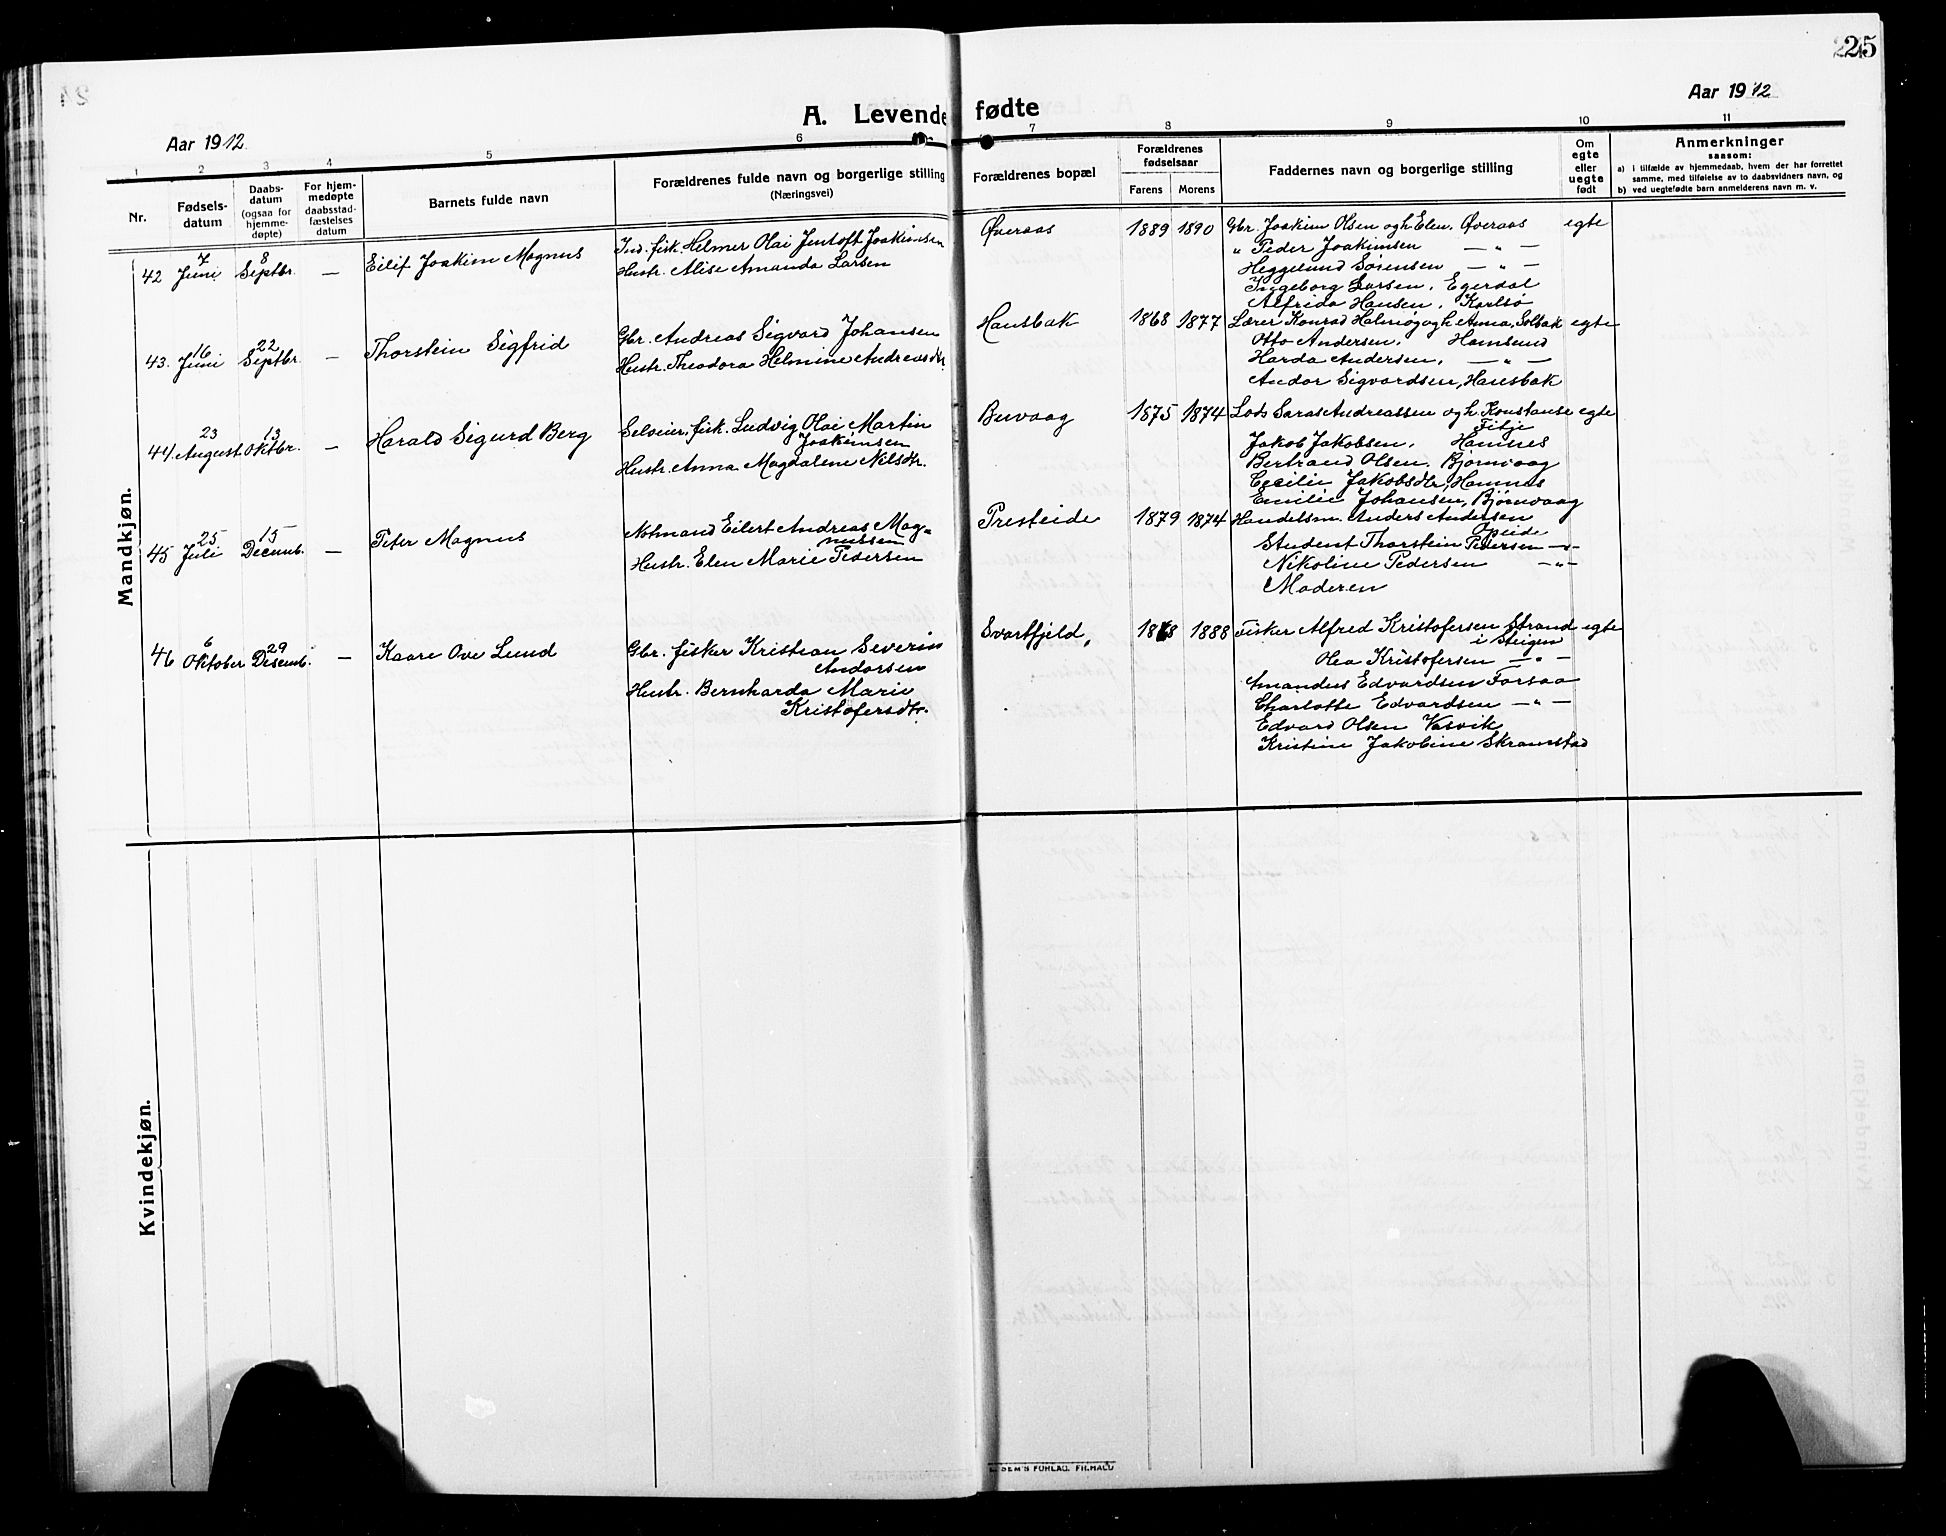 25
Aar 1912
A. Levende fødte
Aar 1912
1 2 3 4 5 6 7 8 9 10 11
Nr.
Fødsels-
datum
Daabs-
datum
(ogsaa for
hjemme-
døpte)
For hjem-
medøpte
daabsstad-
fæstelses
datum
Barnets fulde navn
Forældrenes fulde navn og borgerlige stilling
(Næringsvei)
Forældrenes bopæl
Forældrenes
fødselsaar
Farens Morens
Faddernes navn og borgerlige stilling
Om
egte
eller
uegte
født
Anmerkninger
saasom:
a) i tilfælde av hjemmedaab, hvem der har forrettet
samme, med tilføielse av to daabsvidners navn, og
b) ved uegtefødte barn anmelderens navn m. v.
Mandkjøn.
42 7 Juni 8 Septbr. — Eilif Joakim Magnus
Ind. fisk. Helmer Olai Jentoft Joakimsen
Hustr. Alise Amanda Larsen
Øveraas 1889 1890
Gbr. Joakim Olsen og h. Elen. Øveraas egte
" Peder Joakimsen — " —
Heggelund Sørensen — " —
Inggeborg Larsen. Egerdal
Alfrida Hansen. Karlsø
43. 16 Juni 22 Septbr. — Thorstein Sigfrid
Gbr. Andreas Sigvard Johansen
Hustr. Theodora Helmine Andreasdtr.
Hansbak 1868 1877
Lærer Konrad Halmøy og h. Anna, Solbak egte
Otto Andersen. Hamsund
Harda Andersen. — " —
Andor Sigvardsen, Hansbak
44. 23 August 13 Oktbr. — Harald Sigurd Berg
Selveier, fisk. Ludvig Olai Martin
Joakimsen
Hustr. Anna Magdalene Nilsdtr.
Buvaag 1875 1874
Lods Saras Andreassen og h. Konstanse egte
Fitje
Jakob Jakobsen. Hamnes
Bertrand Olsen. Bjørnvaag
Cecilie Jakobsdtr, Hamnes
Emilie Johansen, Bjørnvaag
45 25 Juli 15 Decemb. — Peter Magnus
Notmand Eilert Andreas Mag-
nussen
Hustr. Elen Marie Pedersen
Presteide 1879 1874
Handelsm. Anders Andersen
Opeide
Student Thorstein Pedersen — " —
Nikoline Pedersen — " —
Moderen
46 6 Oktober 29 Desemb. — Kaare Ove Lund
Gbr. fisker Kristian Severin
Andorsen
Hustr. Bernharda Marie
Kristofersdtr.
Svartfjeld, 1868 1888
Fisker Alfred Kristofersen Strand egte
i Steigen
Olea Kristofersen — " —
Amandus Edvardsen Forsaa
Charlotte Edvardsen — " —
Edvard Olsen Vasvik
Kristine Jakobine Skramstad
Kvindekjøn.
SEM'S FORLAG. FR.HALD